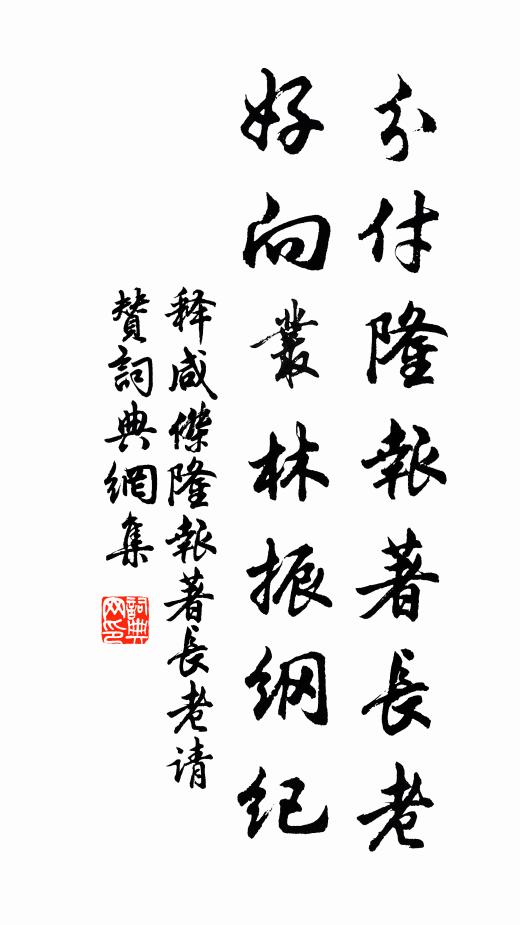 分付隆報著長老
好向叢林振綱紀
释咸傑隆報著長老请
贊詞典網集
詞典
网印